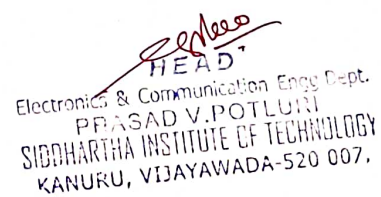 HEAD
Electronics & Communication Engg Dept.
PRASAD V.POTLURI
SIDDHARTHA INSTITUTE OF TECHNOLOGY
KANURU, VIJAYAWADA-520 007.